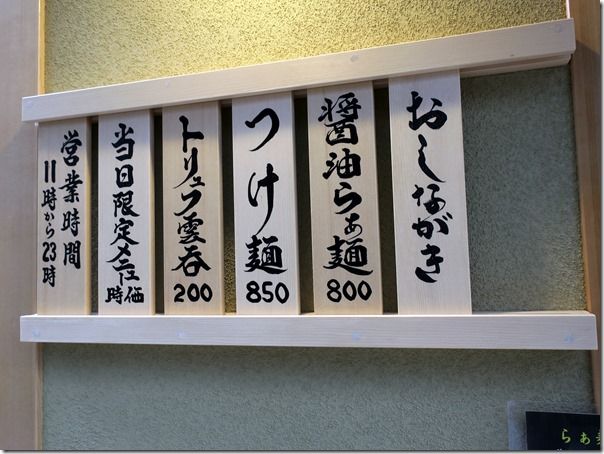 おしながき
醤油らぁ麺
800
つけ麺
850
トリュフ雲呑
200
当日限定メニュー時価
営業時間
11時から23時
らぁ